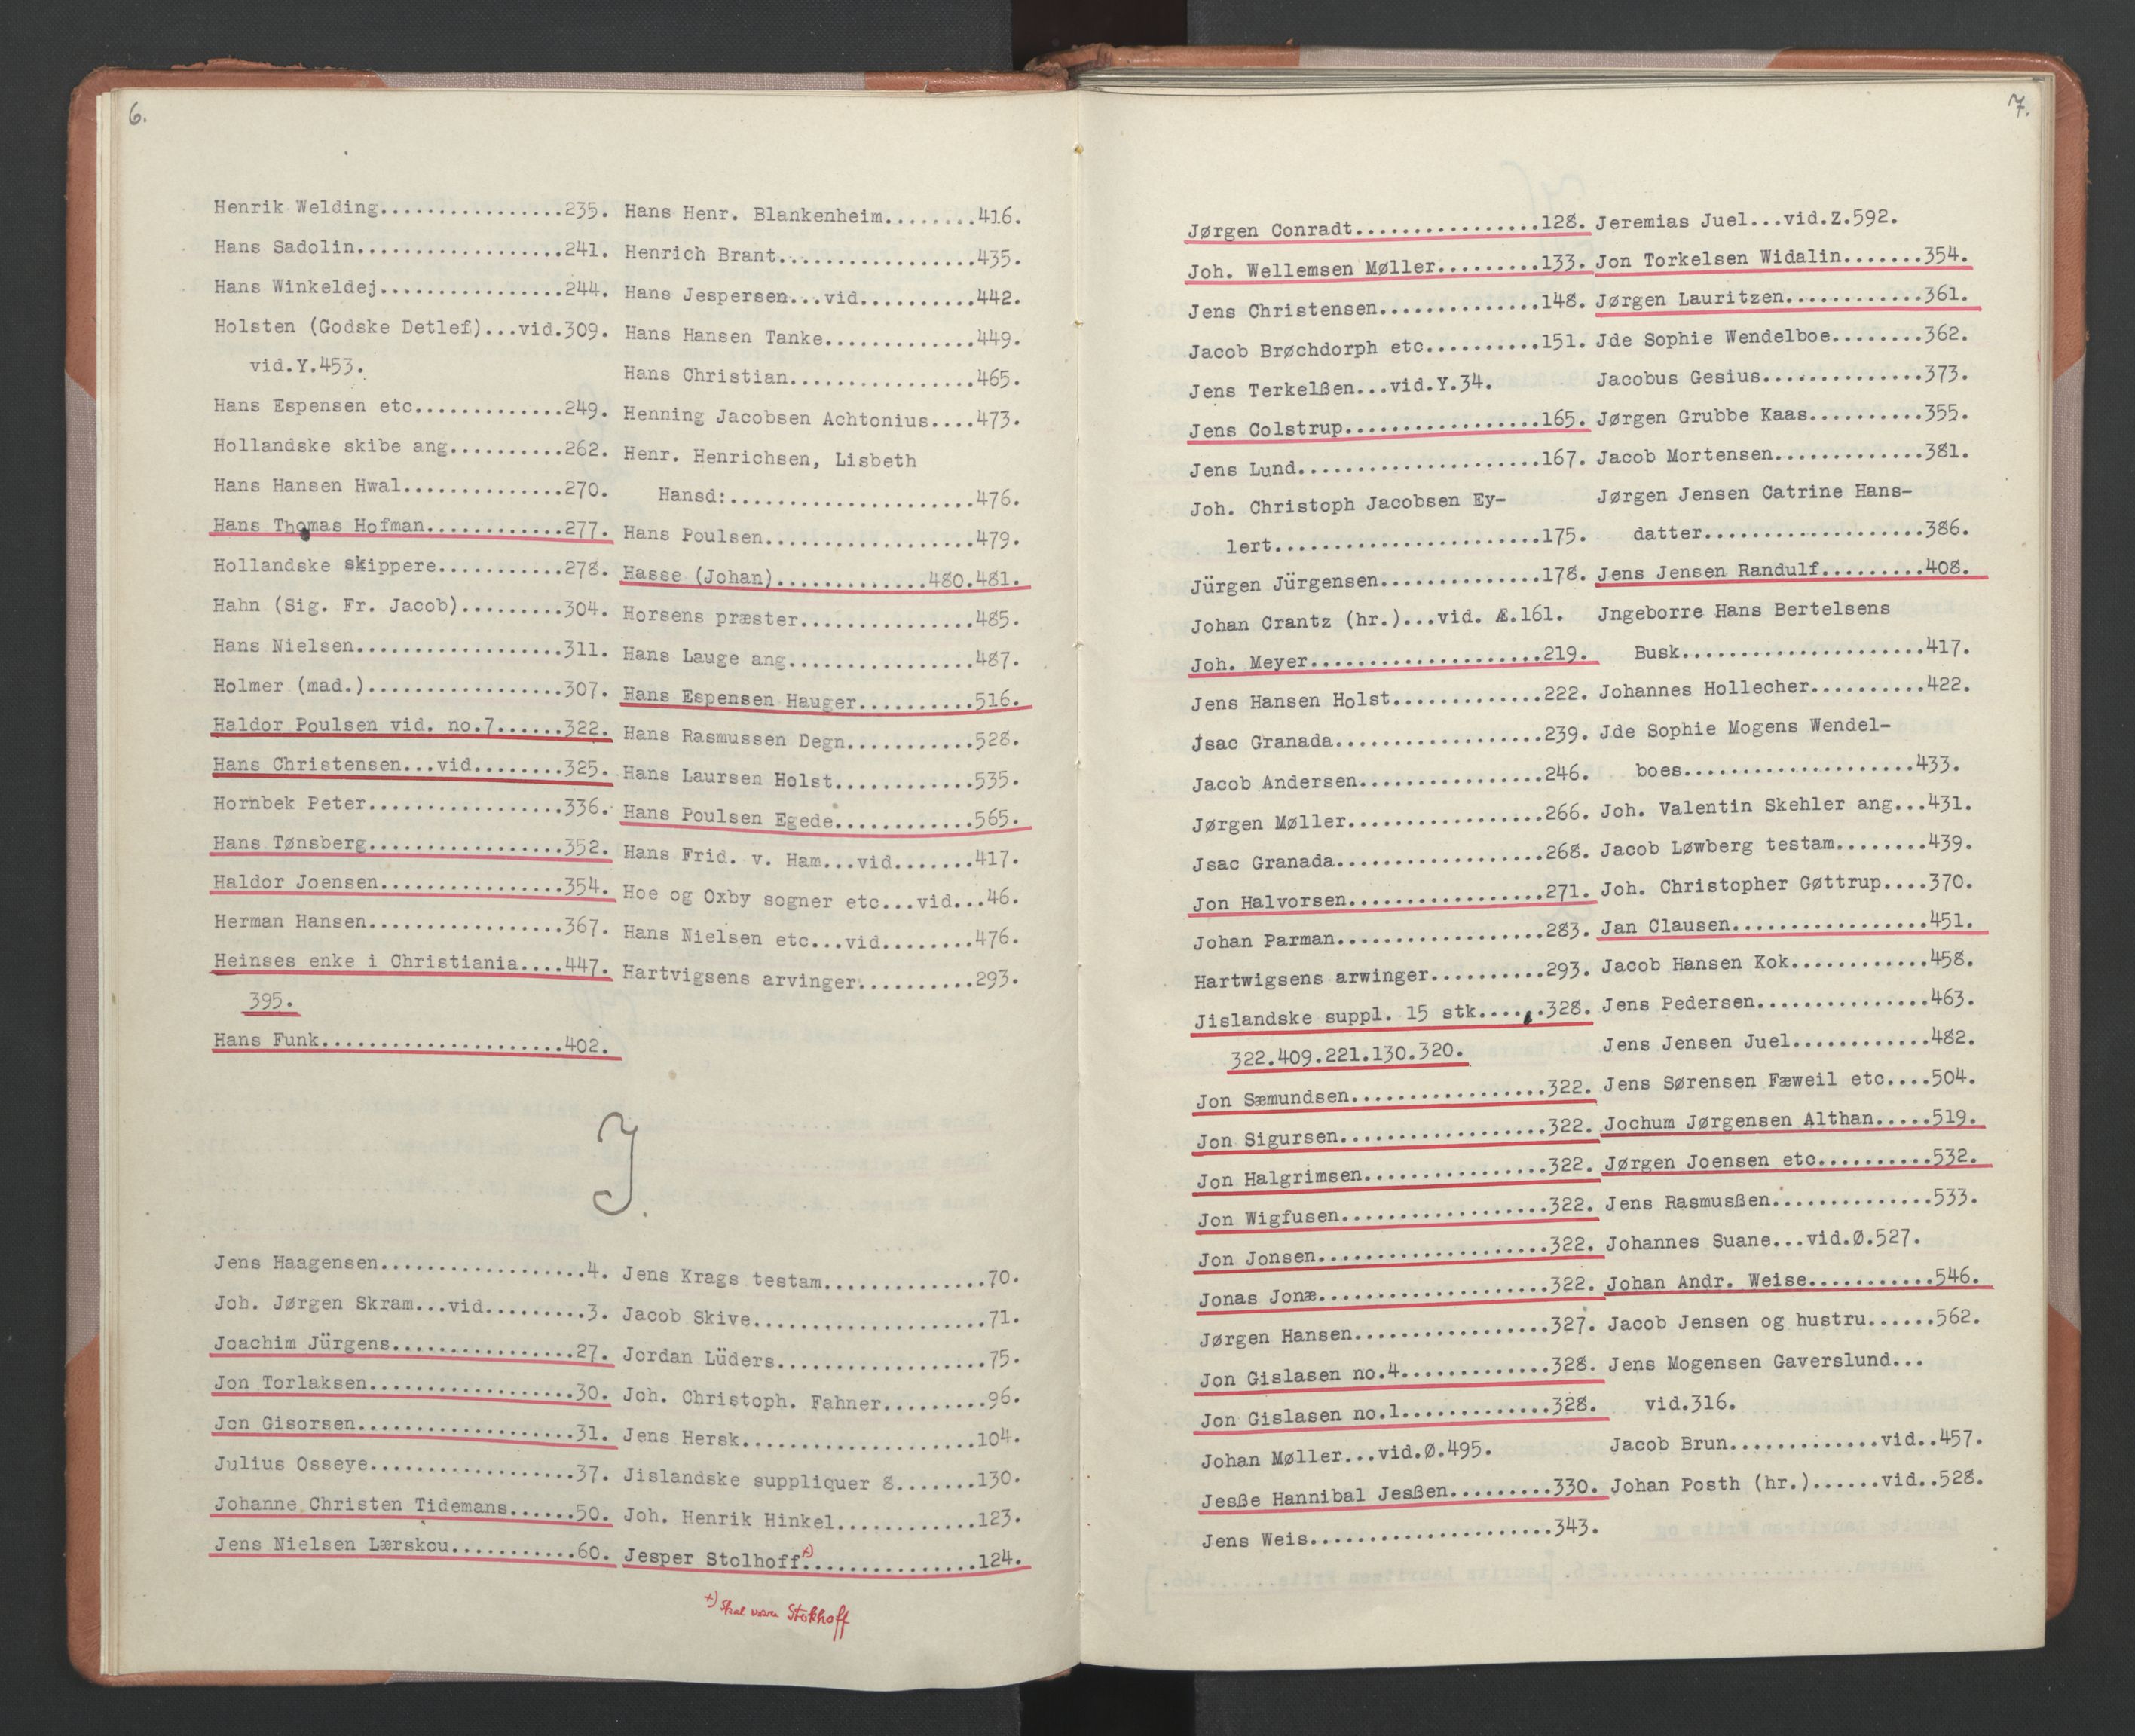 6.
Henrik Welding................235.
Hans Sadolin..................241.
Hans Winkeldej................244.
Holsten (Godske Detlef)...vid.309.
vid.Y.453.
Hans Espensen etc.............249.
Hollandske skibe ang..........262.
Hans Hansen Hwal..............270.
Hans Thomas Hofman............277.
Hollandske skippere...........278.
Hahn (Sig. Fr. Jacob).........304.
Hans Nielsen..................311.
Holmer (mad.).................307.
Haldor Poulsen vid. no.7......322.
Hans Christensen...vid........325.
Hornbek Peter.................336.
Hans Tønsberg.................352.
Haldor Joensen................354.
Herman Hansen.................367.
Heinses enke i Christiania....447.
395.
Hans Funk.....................402.
Hans Henr. Blankenheim........416.
Henrich Brant.................435.
Hans Jespersen...vid..........442.
Hans Hansen Tanke.............449.
Hans Christian................465.
Henning Jacobsen Achtonius....473.
Henr. Henrichsen, Lisbeth
Hansd:.....................476.
Hans Poulsen..................479.
Hasse (Johan).............480.481.
Horsens præster...............485.
Hans Lauge ang................487.
Hans Espensen Hauger..........516.
Hans Rasmussen Degn...........528.
Hans Laursen Holst............535.
Hans Poulsen Egede............565.
Hans Frid. v. Ham...vid.......417.
Hoe og Oxby sogner etc...vid...46.
Hans Nielsen etc...vid........476.
Hartvigsens arvinger..........293.
J.
Jens Haagensen..................4.
Joh. Jørgen Skram...vid.........3.
Joachim Jürgens................27.
Jon Torlaksen..................30.
Jon Gisorsen...................31.
Julius Osseye..................37.
Johanne Christen Tidemans......50.
Jens Nielsen Lærskou...........60.
Jens Krags testam..............70.
Jacob Skive....................71.
Jordan Lüders..................75.
Joh. Christoph. Fahner.........96.
Jens Hersk....................104.
Jislandske suppliquer 8.......130.
Joh. Henrik Hinkel............123.
Jesper Stolhoff+)...............124.
+) Skal være Stokhoff
7.
Jørgen Conradt................128.
Joh. Wellemsen Møller.........133.
Jens Christensen..............148.
Jacob Brøchdorph etc..........151.
Jens Terkelßen...vid.Y.34.
Jens Colstrup.................165.
Jens Lund.....................167.
Joh. Christoph Jacobsen Ey-
lert.......................175.
Jürgen Jürgensen..............178.
Johan Crantz (hr.)...vid. Æ.161.
Joh. Meyer....................219.
Jens Hansen Holst.............222.
Jsac Granada..................239.
Jacob Andersen................246.
Jørgen Møller.................266.
Jsac Granada..................268.
Jon Halvorsen.................271.
Johan Parman..................283.
Hartwigsens arwinger..........293.
Jislandske suppl. 15 stk......328.
322.409.221.130.320.
Jon Sæmundsen.................322.
Jon Sigursen..................322.
Jon Halgrimsen................322.
Jon Wigfusen..................322.
Jon Jonsen....................322.
Jonas Jonæ....................322.
Jørgen Hansen.................327.
Jon Gislasen no.4.............328.
Jon Gislasen no.1.............328.
Johan Møller...vid.Ø.495.
Jesße Hannibal Jesßen.........330.
Jens Weis.....................343.
Jeremias Juel...vid.Z.592.
Jon Torkelsen Widalin.......354.
Jørgen Lauritzen............361.
Jde Sophie Wendelboe........362.
Jacobus Gesius..............373.
Jørgen Grubbe Kaas..........355.
Jacob Mortensen.............381.
Jørgen Jensen Catrine Hans-
datter...................386.
Jens Jensen Randulf.........408.
Jngeborre Hans Bertelsens
Busk.....................417.
Johannes Hollecher..........422.
Jde Sophie Mogens Wendel-
boes....................433.
Joh. Valentin Skehler ang...431.
Jacob Løwberg testam........439.
Joh. Christopher Gøttrup....370.
Jan Clausen.................451.
Jacob Hansen Kok............458.
Jens Pedersen...............463.
Jens Jensen Juel............482.
Jens Sørensen Fæweil etc....504.
Jochum Jørgensen Althan.....519.
Jørgen Joensen etc..........532.
Jens Rasmusßen..............533.
Johannes Suane...vid.Ø.527.
Johan Andr. Weise...........546.
Jacob Jensen og hustru......562.
Jens Mogensen Gaverslund...
vid.316.
Jacob Brun.............vid..457.
Johan Posth (hr.)......vid..528.